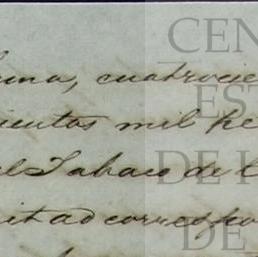 suma, cuatrocie
cientos mil pe
el Tabaco de l
mitad correspo
CEN
EST
DE I
DE